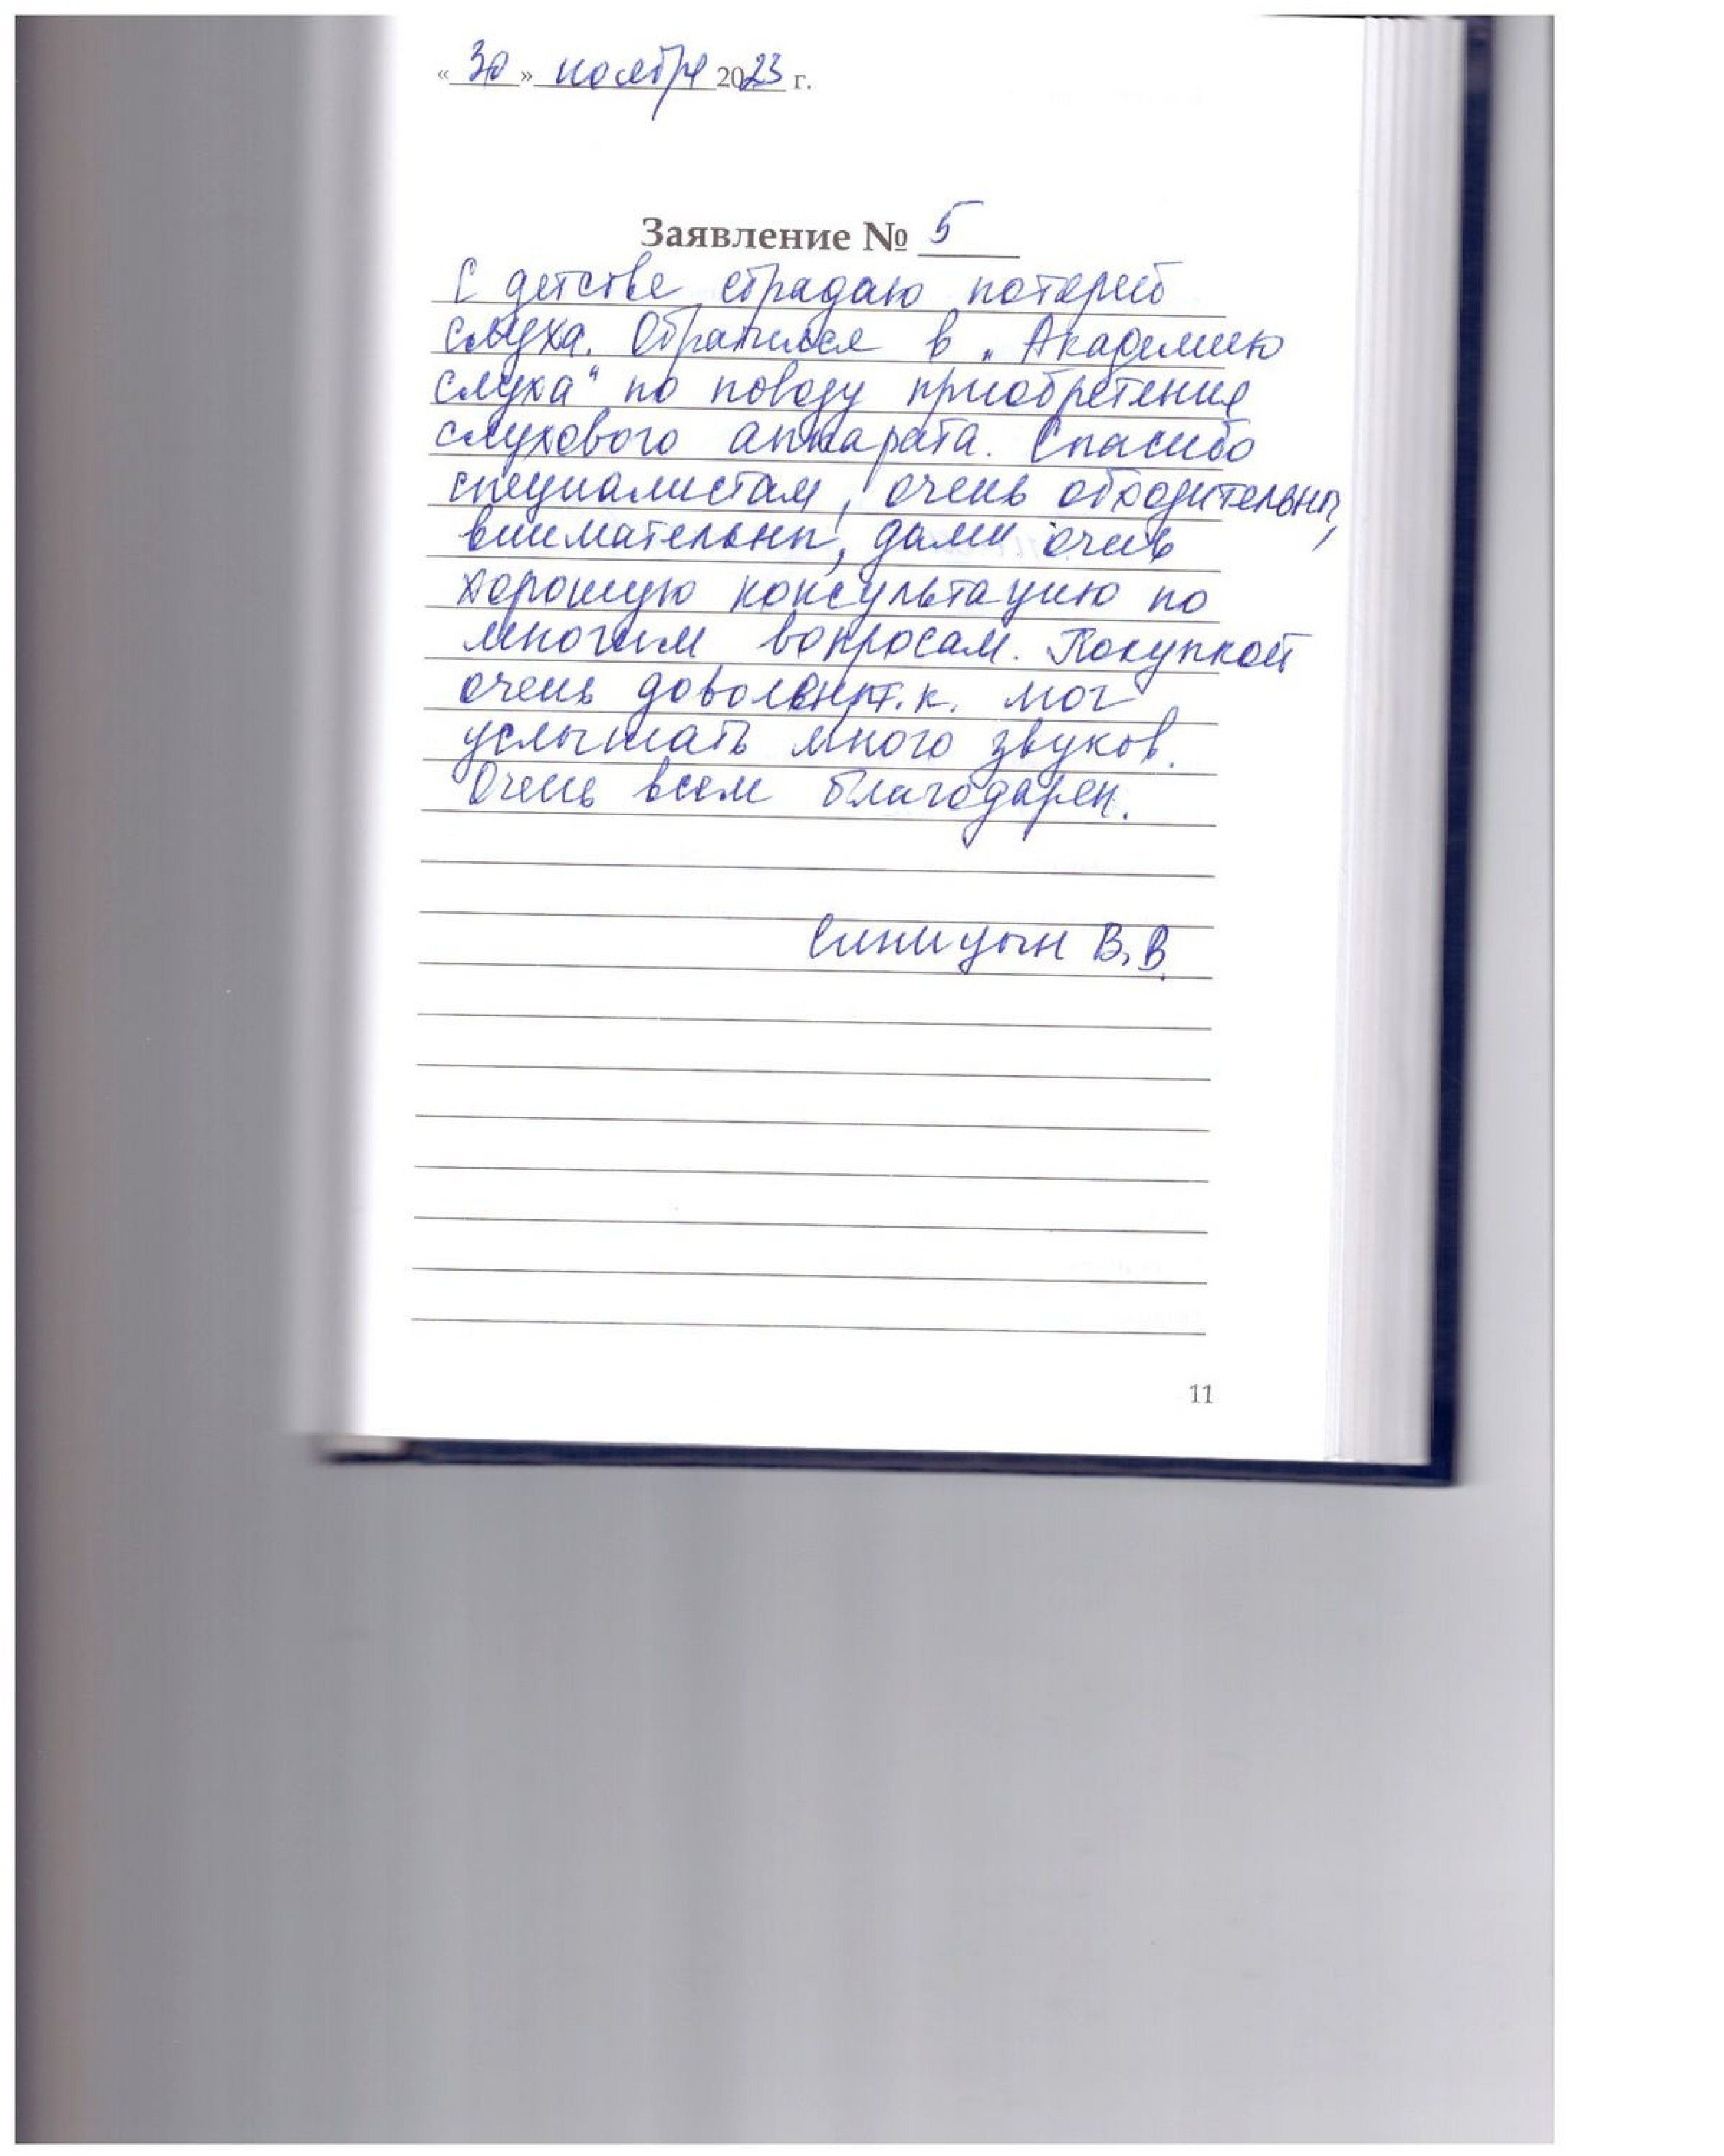 «30» ноября 2023 г.
Заявление № 5
С детстве страдаю потерей
слуха. Обратился в „Академию
слуха“ по поводу приобретения
слухового аппарата. Спасибо
специалистам, очень обходительны,
внимательны, дали очень
хорошую консультацию по
многим вопросам. Покупкой
очень доволен т.к. мог
услышать много звуков.
Очень всем благодарен.
Синицын В.В.
11